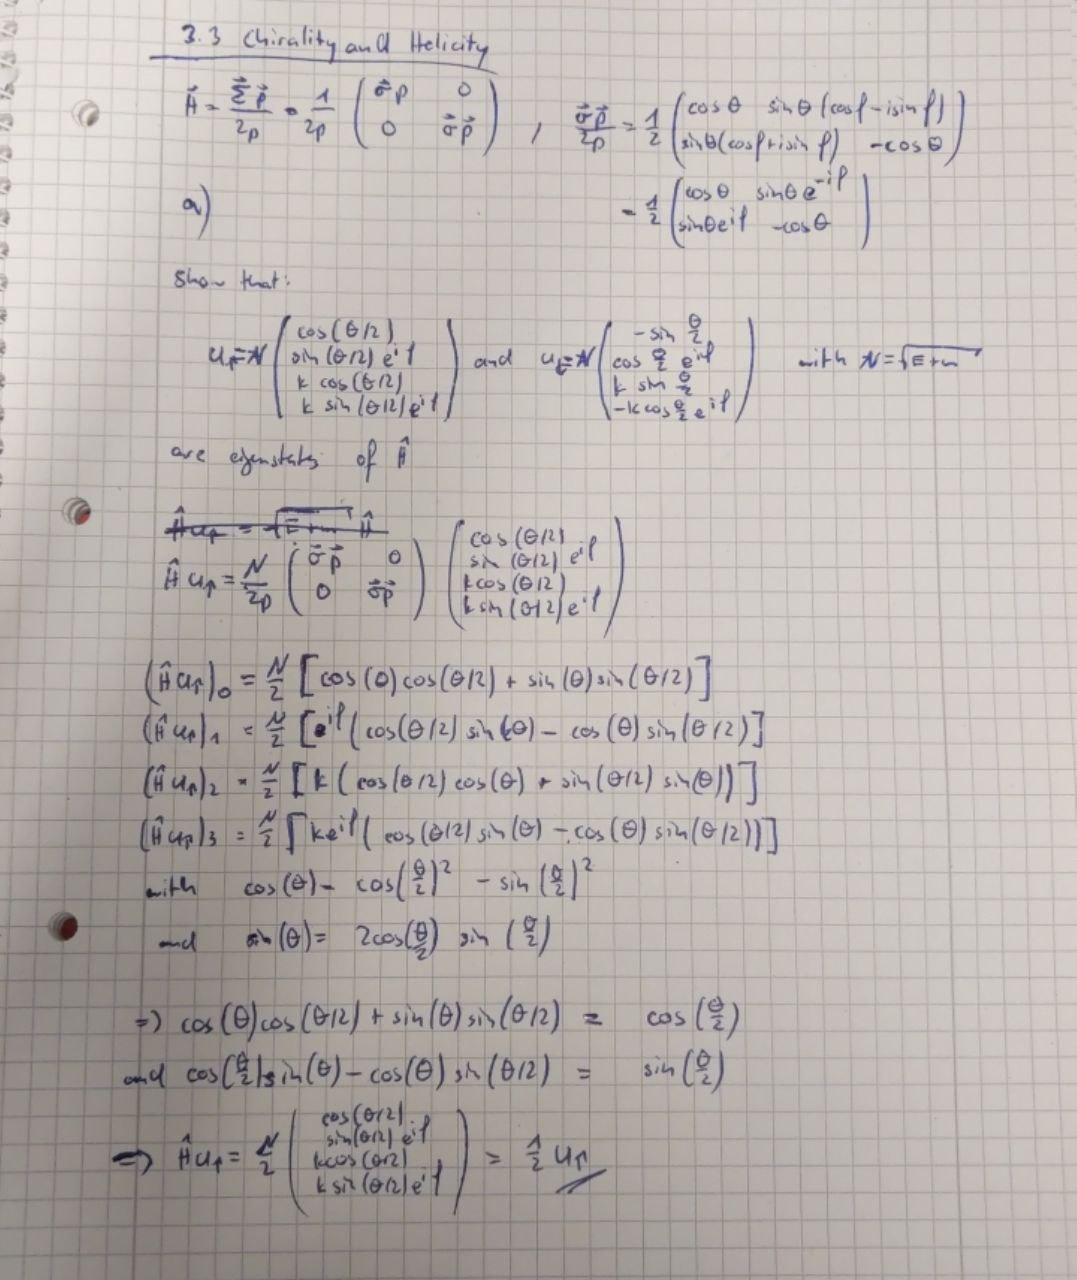 3.3 Chirality and Helicity
Ĥ = Σ⃗ p⃗ / 2p = 1/2p ( σ⃗p 0 ; 0 σ⃗p⃗ ) , σ⃗p⃗ / 2p = 1/2 ( cosθ sinθ(cosφ - i sinφ) ; sinθ(cosφ + i sin φ) -cosθ )
= 1/2 ( cosθ sinθ e^{-iφ} ; sinθ e^{iφ} -cosθ )
a)
Show that:
u↑ = N ( cos(θ/2) ; sin(θ/2) e^{iφ} ; k cos(θ/2) ; k sin(θ/2) e^{iφ} ) and u↓ = N ( -sin θ/2 ; cos θ/2 e^{iφ} ; k sin θ/2 ; -k cos θ/2 e^{iφ} ) with N = √(E+m)
are eigenstates of Ĥ
Ĥ u↑ = √(E+m) Ĥ
Ĥ u↑ = N/2p ( σ⃗p⃗ 0 ; 0 σ⃗p⃗ ) ( cos(θ/2) ; sin(θ/2) e^{iφ} ; k cos(θ/2) ; k sin(θ/2) e^{iφ} )
(Ĥ u↑)₀ = N/2 [cos(θ) cos(θ/2) + sin(θ) sin(θ/2)]
(Ĥ u↑)₁ = N/2 [e^{iφ} (cos(θ/2) sin(θ) - cos(θ) sin(θ/2)]
(Ĥ u↑)₂ = N/2 [k (cos(θ/2) cos(θ) + sin(θ/2) sin(θ))]
(Ĥ u↑)₃ = N/2 [k e^{iφ} (cos(θ/2) sin(θ) - cos(θ) sin(θ/2))]
with cos(θ) = cos(θ/2)² - sin(θ/2)²
and sin(θ) = 2cos(θ/2) sin(θ/2)
=> cos(θ) cos(θ/2) + sin(θ) sin(θ/2) = cos(θ/2)
and cos(θ/2) sin(θ) - cos(θ) sin(θ/2) = sin(θ/2)
=> Ĥ u↑ = N/2 ( cos(θ/2) ; sin(θ/2) e^{iφ} ; k cos(θ/2) ; k sin(θ/2) e^{iφ} ) = 1/2 u↑